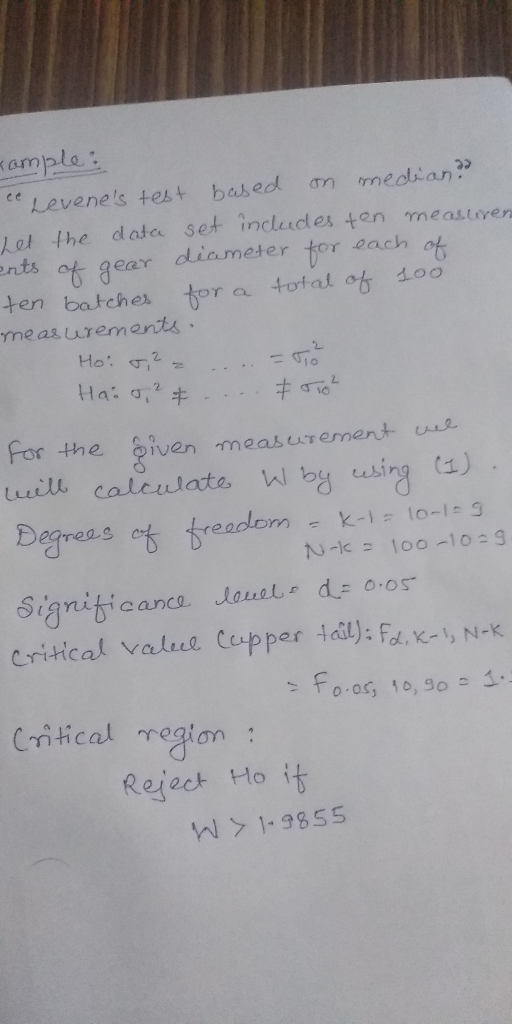 xample:
"Levene's test based on median"
Let the data set includes ten measurem
ents of gear diameter for each of
ten batches for a total of 100
measurements.
Ho: σ₁² = .... = σ₁₀²
Ha: σ₁² ≠ .... ≠ σ₁₀²
For the given measurement we
will calculate W by using (1).
Degrees of freedom = K-1 = 10-1=9
N-K = 100-10=9
Significance level = α = 0.05
Critical value (upper tail): Fα, K-1, N-K
= F0.05, 10, 90 = 1.
Critical region:
Reject Ho if
W > 1.9855